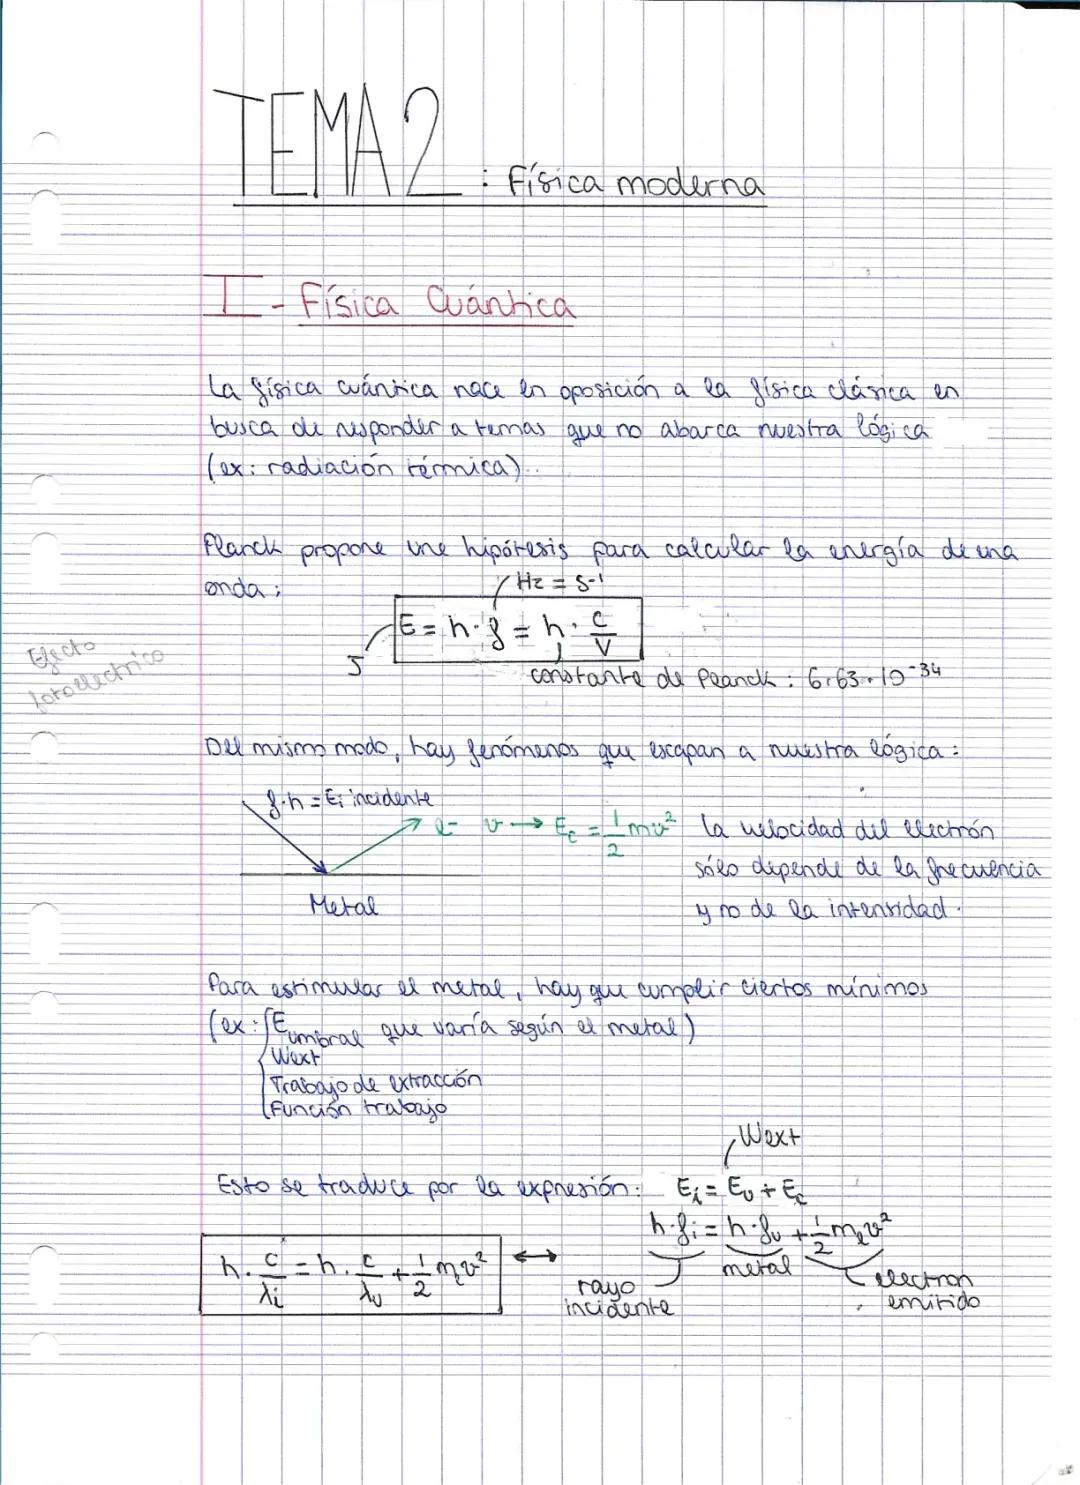 TEMA 2 : Física moderna
I - Física Cuántica
La física cuántica nace en oposición a la física clásica en
busca de responder a temas que no abarca nuestra lógica
(ex: radiación térmica)..
Planck propone une hipótesis para calcular la energía de una
onda :
Hz = s-1
E = h·f = h · c/V
J
constante de Planck : 6,63·10^-34
Efecto
fotoeléctrico
Del mismo modo, hay fenómenos que escapan a nuestra lógica :
f·h = Ei incidente
e- v → Ec = 1/2 mv² La velocidad del electrón
sólo depende de la frecuencia
Metal
y no de la intensidad.
Para estimular el metal, hay que cumplir ciertos mínimos
(ex : { Eumbral que varía según el metal)
Wext
Trabajo de extracción
Función trabajo
Wext
Esto se traduce por la expresión: Ei = Eu + Ec
h·fi = h·fu + 1/2 mev²
h · c/λi = h · c/λu + 1/2 mv² ↔
rayo incidente
metal
electron emitido